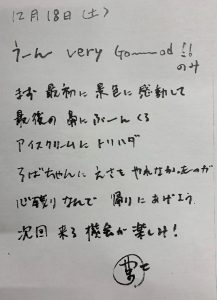 12月18日(土)
うーん very Good!!
のみ
まず 最初に 景色に 感動して
最後の 鼻に ぶーんくる
アイスクリームに トリハダ
そばちゃんに えさを やれなかったのが
心残りなんで 帰りに あげよう
次回 来る 機会が 楽しみ!